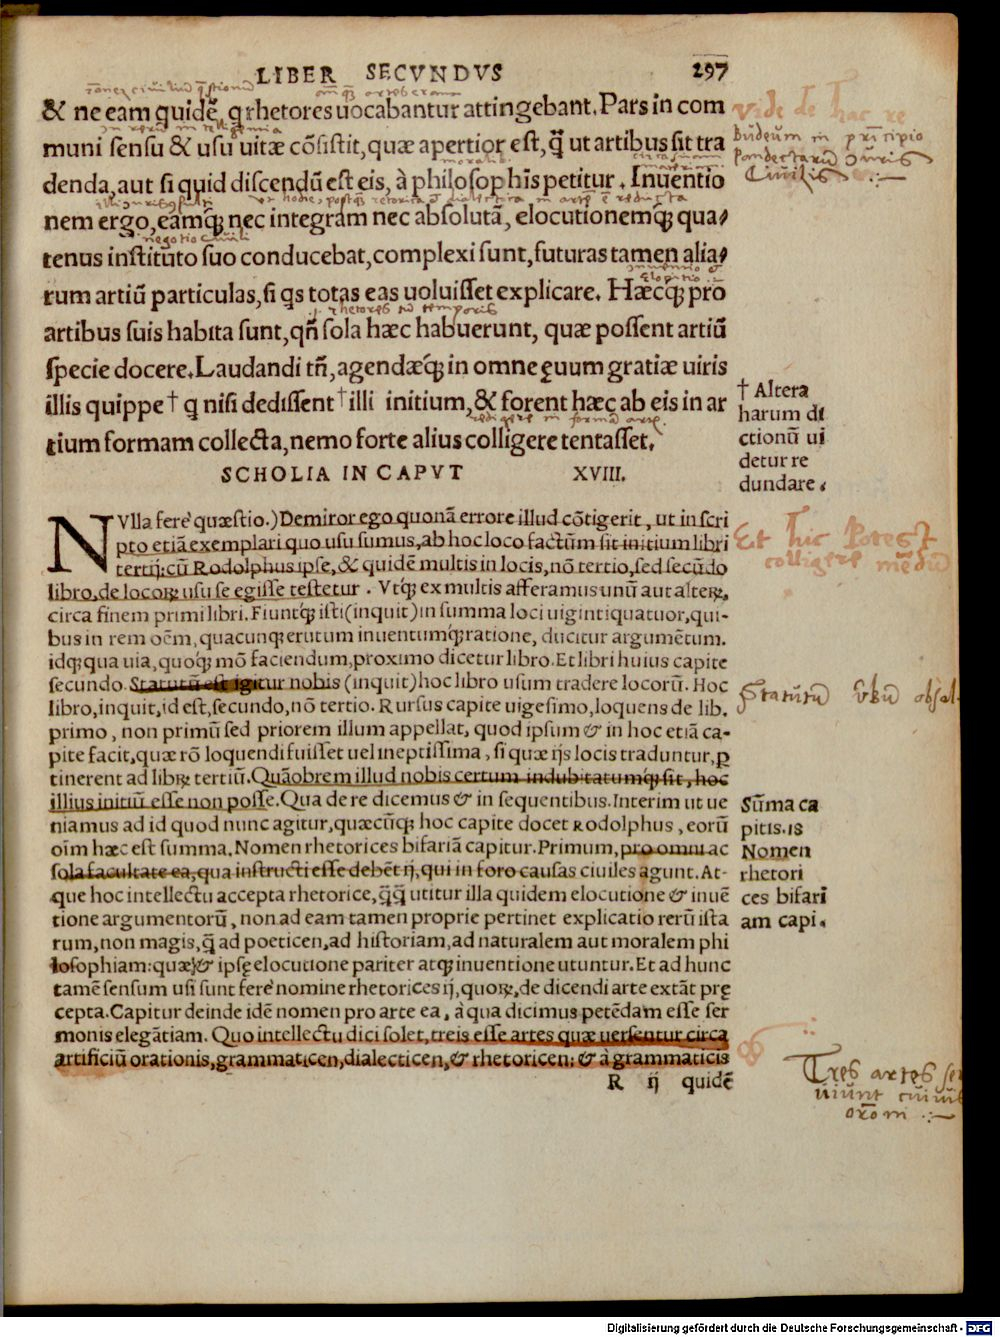 LIBER SECVNDVS 297
& ne eam quidē, q̄ rhetores uocabantur attingebant. Pars in com
muni sensu & usu uitæ cōsistit, quæ apertior est, q̄ ut artibus sit tra
denda, aut si quid discendū est eis, à philosophis petitur. Inuentio
nem ergo, eamq; nec integram nec absolutā, elocutionemq; qua/
tenus instituto suo conducebat, complexi sunt, futuras tamen alia/
rum artiū particulas, si qs totas eas uoluisset explicare. Hæcq; pro
artibus suis habita sunt, qn̄ sola hæc habuerunt, quæ possent artiū
specie docere. Laudandi tn̄, agendæq; in omne ęuum gratiæ uiris
illis quippe † q nisi dedissent † illi initium, & forent hæc ab eis in ar
tium formam collecta, nemo forte alius colligere tentasset.
† Altera
harum di
ctionū ui
detur re
dundare.
SCHOLIA IN CAPVT XVIII.
NVlla ferè quæstio.) Demiror ego quonā errore illud cōtigerit, ut in scri
pto etiā exemplari quo usu sumus, ab hoc loco factum sit initium libri
tertij: cū Rodolphus ipse, & quidē multis in locis, nō tertio, sed secūdo
libro, de locoꝝ usu se egisse testetur. Vtq; ex multis afferamus unū aut alteꝝ,
circa finem primi libri. Fiuntq; isti (inquit) in summa loci uigintiquatuor, qui-
bus in rem oēm, quacunq; erutum inuentumq; ratione, ducitur argumētum.
idq; qua uia, quoq; mō faciendum, proximo dicetur libro. Et libri huius capite
secundo. Statutū est igitur nobis (inquit) hoc libro usum tradere locorū. Hoc
libro, inquit, id est, secundo, nō tertio. Rursus capite uigesimo, loquens de lib.
primo, non primū sed priorem illum appellat, quod ipsum & in hoc etiā ca-
pite facit, quæ rō loquendi fuisset uel ineptissima, si quæ ijs locis traduntur, ꝑ
tinerent ad libꝝ tertiū. Quāobrem illud nobis certum indubitatumq; sit, hoc
illius initiū esse non posse. Qua de re dicemus & in sequentibus. Interim ut ue
niamus ad id quod nunc agitur, quæcūq; hoc capite docet Rodolphus, eorū
oīm hæc est summa. Nomen rhetorices bifariā capitur. Primum, pro omni ac
sola facultate ea, qua instructi esse debēt ij, qui in foro causas ciuiles agunt. At-
que hoc intellectu accepta rhetorice, q̄q̄ utitur illa quidem elocutione & inuē
tione argumentorū, non ad eam tamen proprie pertinet explicatio rerū ista
rum, non magis, q̄ ad poeticen, ad historiam, ad naturalem aut moralem phi
losophiam: quæ & ipsę elocutione pariter atq; inuentione utuntur. Et ad hunc
tamē sensum usi sunt ferè nomine rhetorices ij, quoꝝ, de dicendi arte extāt prę
cepta. Capitur deinde idē nomen pro arte ea, à qua dicimus petēdam esse ser
monis elegātiam. Quo intellectu dici solet, treis esse artes quæ uersentur circa
artificiū orationis, grammaticen, dialecticen, & rhetoricen: & à grammaticis
R ij quidē
Sūma ca
pitis. 18
Nomen
rhetori
ces bifari
am capi.
Vide de hac re
Budeum in principio
Pandectarū
Ciuilis
Et hic Potest
colligere mediū
Statutū
Tres artes ser
uiunt
Digitalisierung gefördert durch die Deutsche Forschungsgemeinschaft - DFG